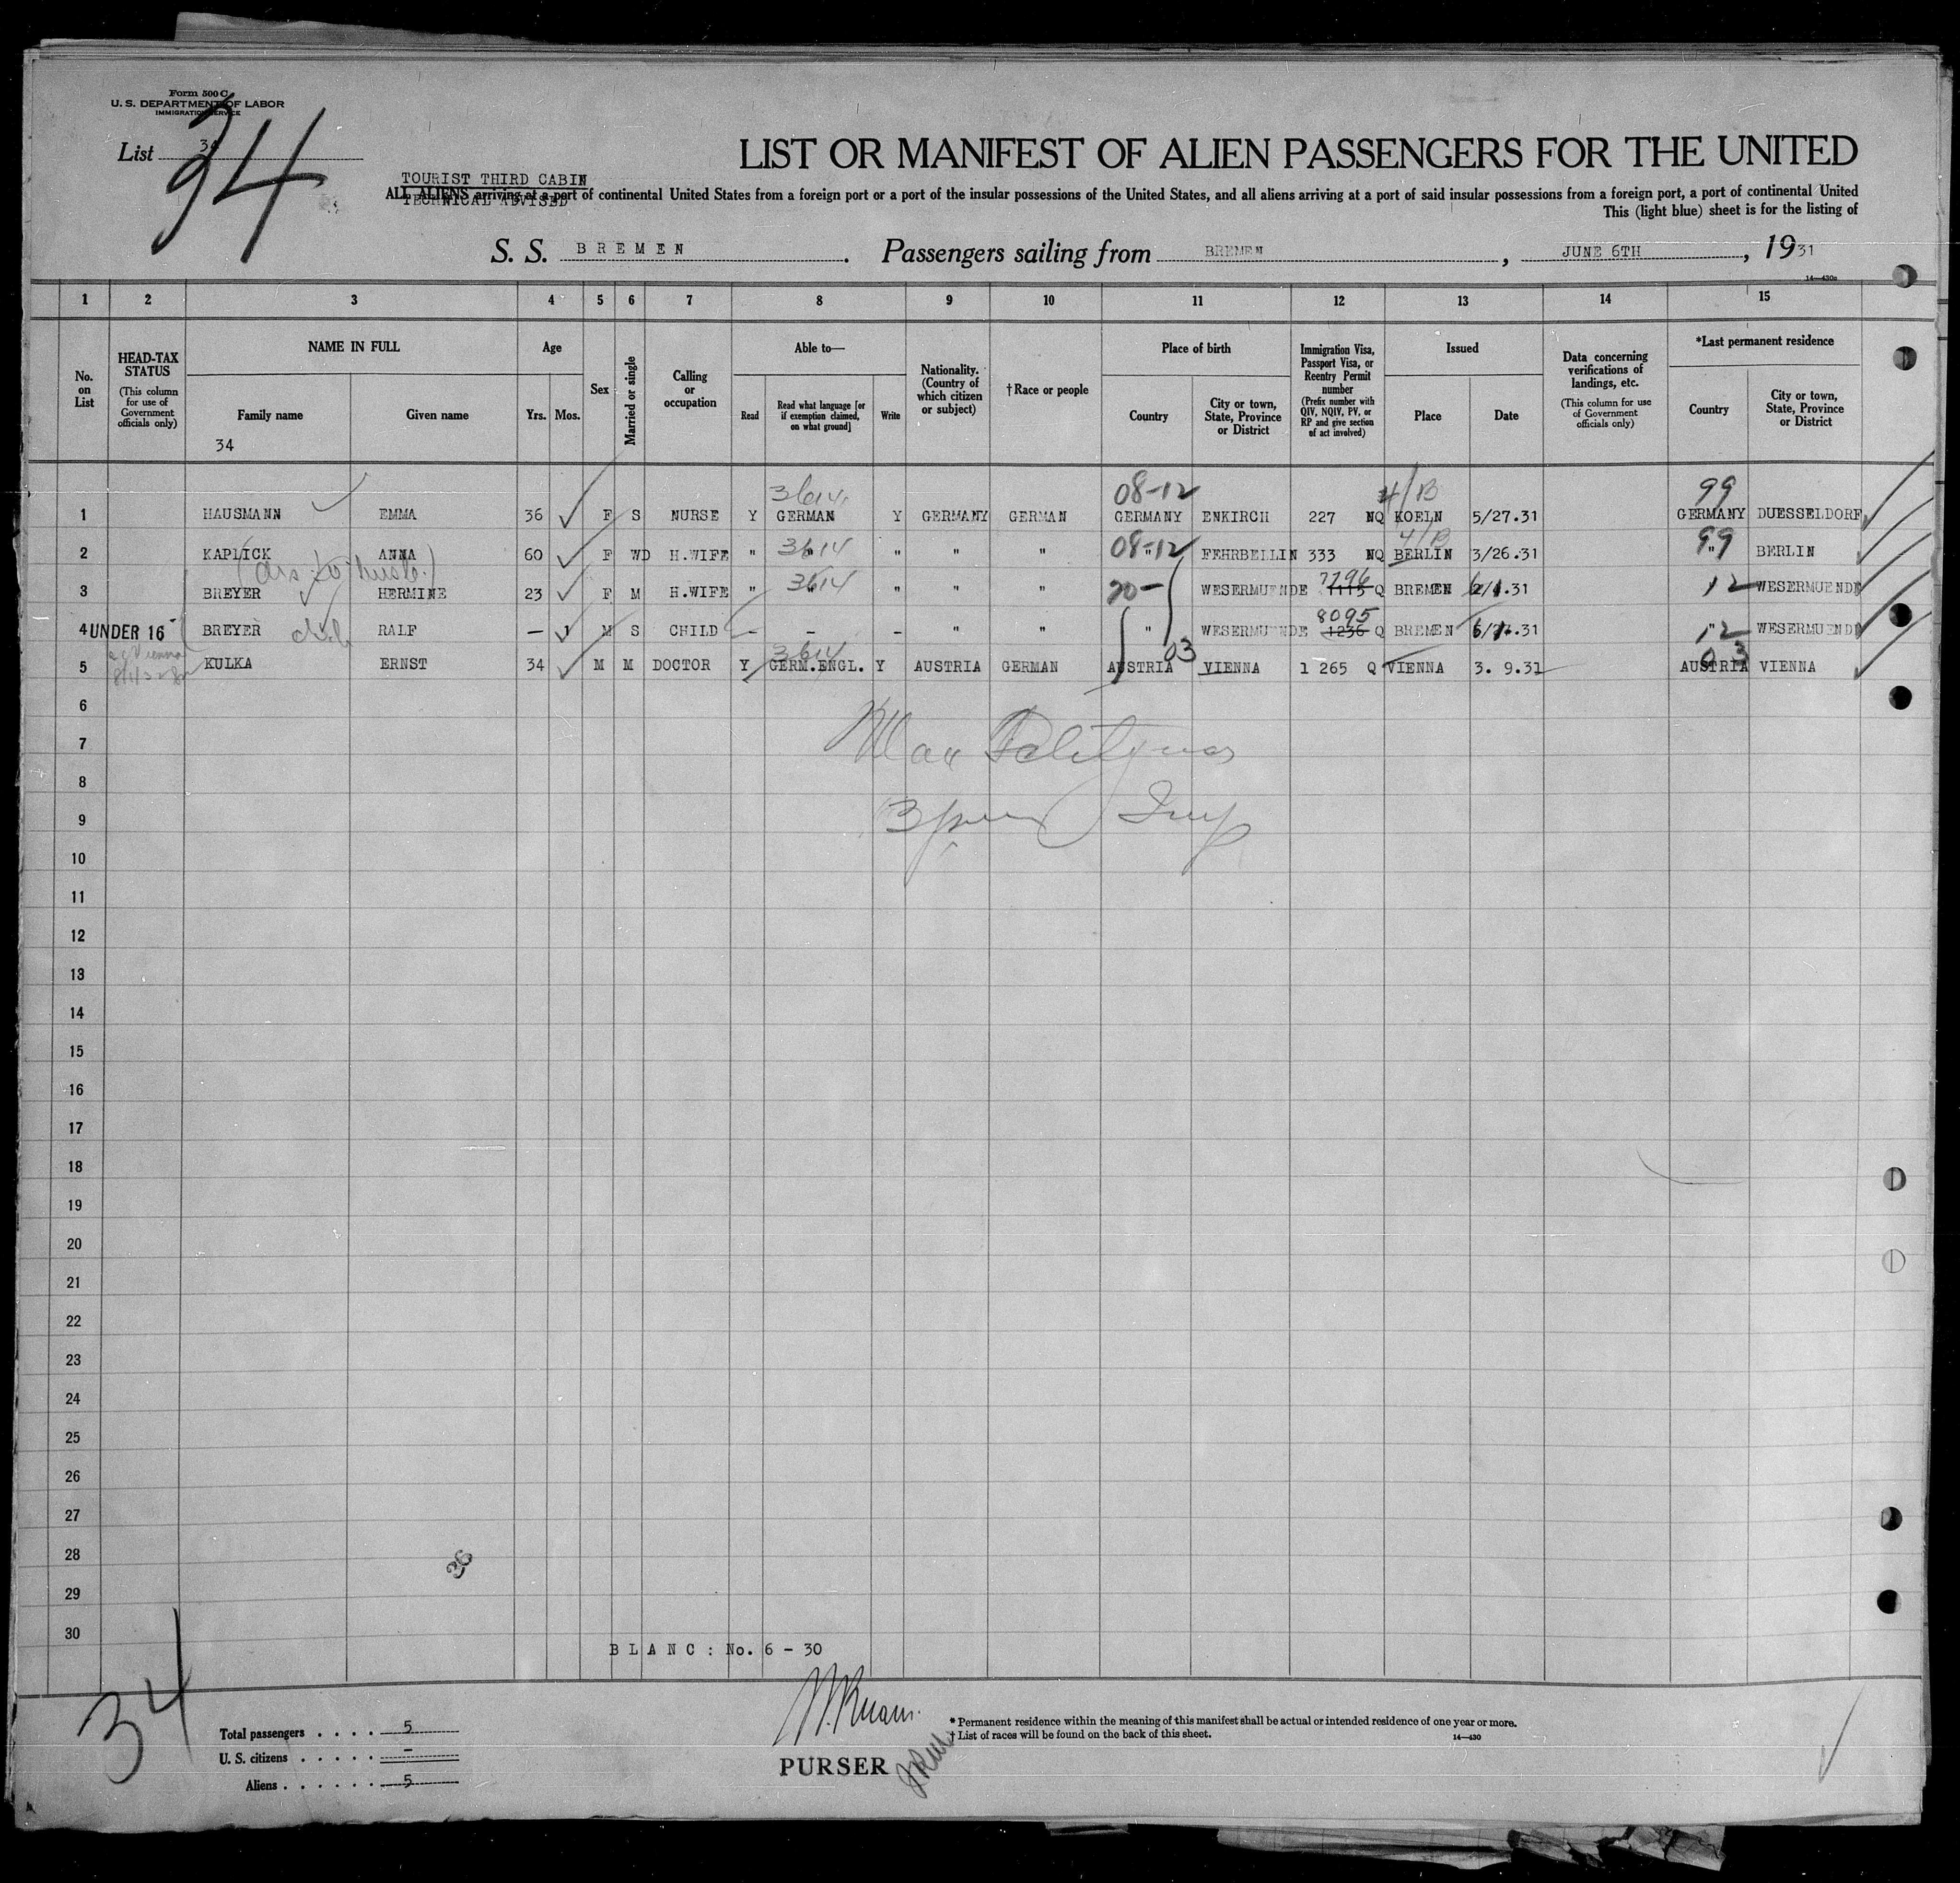 Form 500 C
U. S. DEPARTMENT OF LABOR
IMMIGRATION SERVICE
List 34
34
LIST OR MANIFEST OF ALIEN PASSENGERS FOR THE UNITED
TOURIST THIRD CABIN
ALL ALIENS arriving at a port of continental United States from a foreign port or a port of the insular possessions of the United States, and all aliens arriving at a port of said insular possessions from a foreign port, a port of continental United
TECHNICAL ADVISED
This (light blue) sheet is for the listing of
S. S. BREMEN. Passengers sailing from BREMEN, JUNE 6TH, 1931
14—430a
1 2 3 4 5 6 7 8 9 10 11 12 13 14 15
No. on List
HEAD-TAX STATUS
(This column for use of Government officials only)
NAME IN FULL
Family name
Given name
34
Age
Yrs. Mos.
Sex
Married or single
Calling or occupation
Able to—
Read
Read what language [or if exemption claimed, on what ground]
Write
Nationality. (Country of which citizen or subject)
† Race or people
Place of birth
Country
City or town, State, Province or District
Immigration Visa, Passport Visa, or Reentry Permit number
(Prefix number with QIV, NQIV, PV, or RP and give section of act involved)
Issued
Place
Date
Data concerning verifications of landings, etc.
(This column for use of Government officials only)
*Last permanent residence
Country
City or town, State, Province or District
3614 08-12 4/B 99
1 HAUSMANN EMMA 36 F S NURSE Y GERMAN Y GERMANY GERMAN GERMANY ENKIRCH 227 NQ KOELN 5/27.31 GERMANY DUESSELDORF
3614 08-12 4/B 99
2 KAPLICK ANNA 60 F WD H.WIFE " " " " " " FEHRBELLIN 333 NQ BERLIN 3/26.31 " BERLIN
3614 20- 7796 12
3 BREYER HERMINE 23 F M H.WIFE " " " " " WESERMUENDE 1115 Q BREMEN 31 WESERMUENDE
8095 12
4 UNDER 16 BREYER RALF – 1 M S CHILD – – – " " " WESERMUENDE 1236 Q BREMEN 31 " WESERMUENDE
3614 03 03
5 KULKA ERNST 34 M M DOCTOR Y GERM.ENGL. Y AUSTRIA GERMAN AUSTRIA VIENNA 1 265 Q VIENNA 3. 9.31 AUSTRIA VIENNA
6
7 Max
8
9 Insp
10
11
12
13
14
15
16
17
18
19
20
21
22
23
24
25
26
27
28
36
29
30
BLANC: No. 6 - 30
34
Total passengers . . . . 5
U. S. citizens . . . . . –
Aliens . . . . . . 5
PURSER
* Permanent residence within the meaning of this manifest shall be actual or intended residence of one year or more.
† List of races will be found on the back of this sheet.
14—430